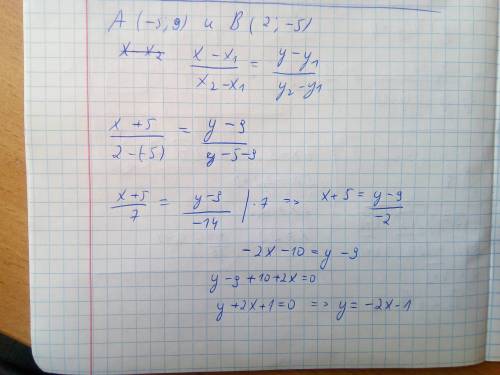 A (-5,9) и B (2; -5)
x-x₂ (x-x₁)/(x₂-x₁) = (y-y₁)/(y₂-y₁)
(x+5)/(2-(-5)) = (y-9)/(y-5-9)
(x+5)/7 = (y-9)/(-14) |·7 => x+5 = (y-9)/(-2)
-2x-10=y-9
y-9+10+2x=0
y+2x+1=0 => y=-2x-1